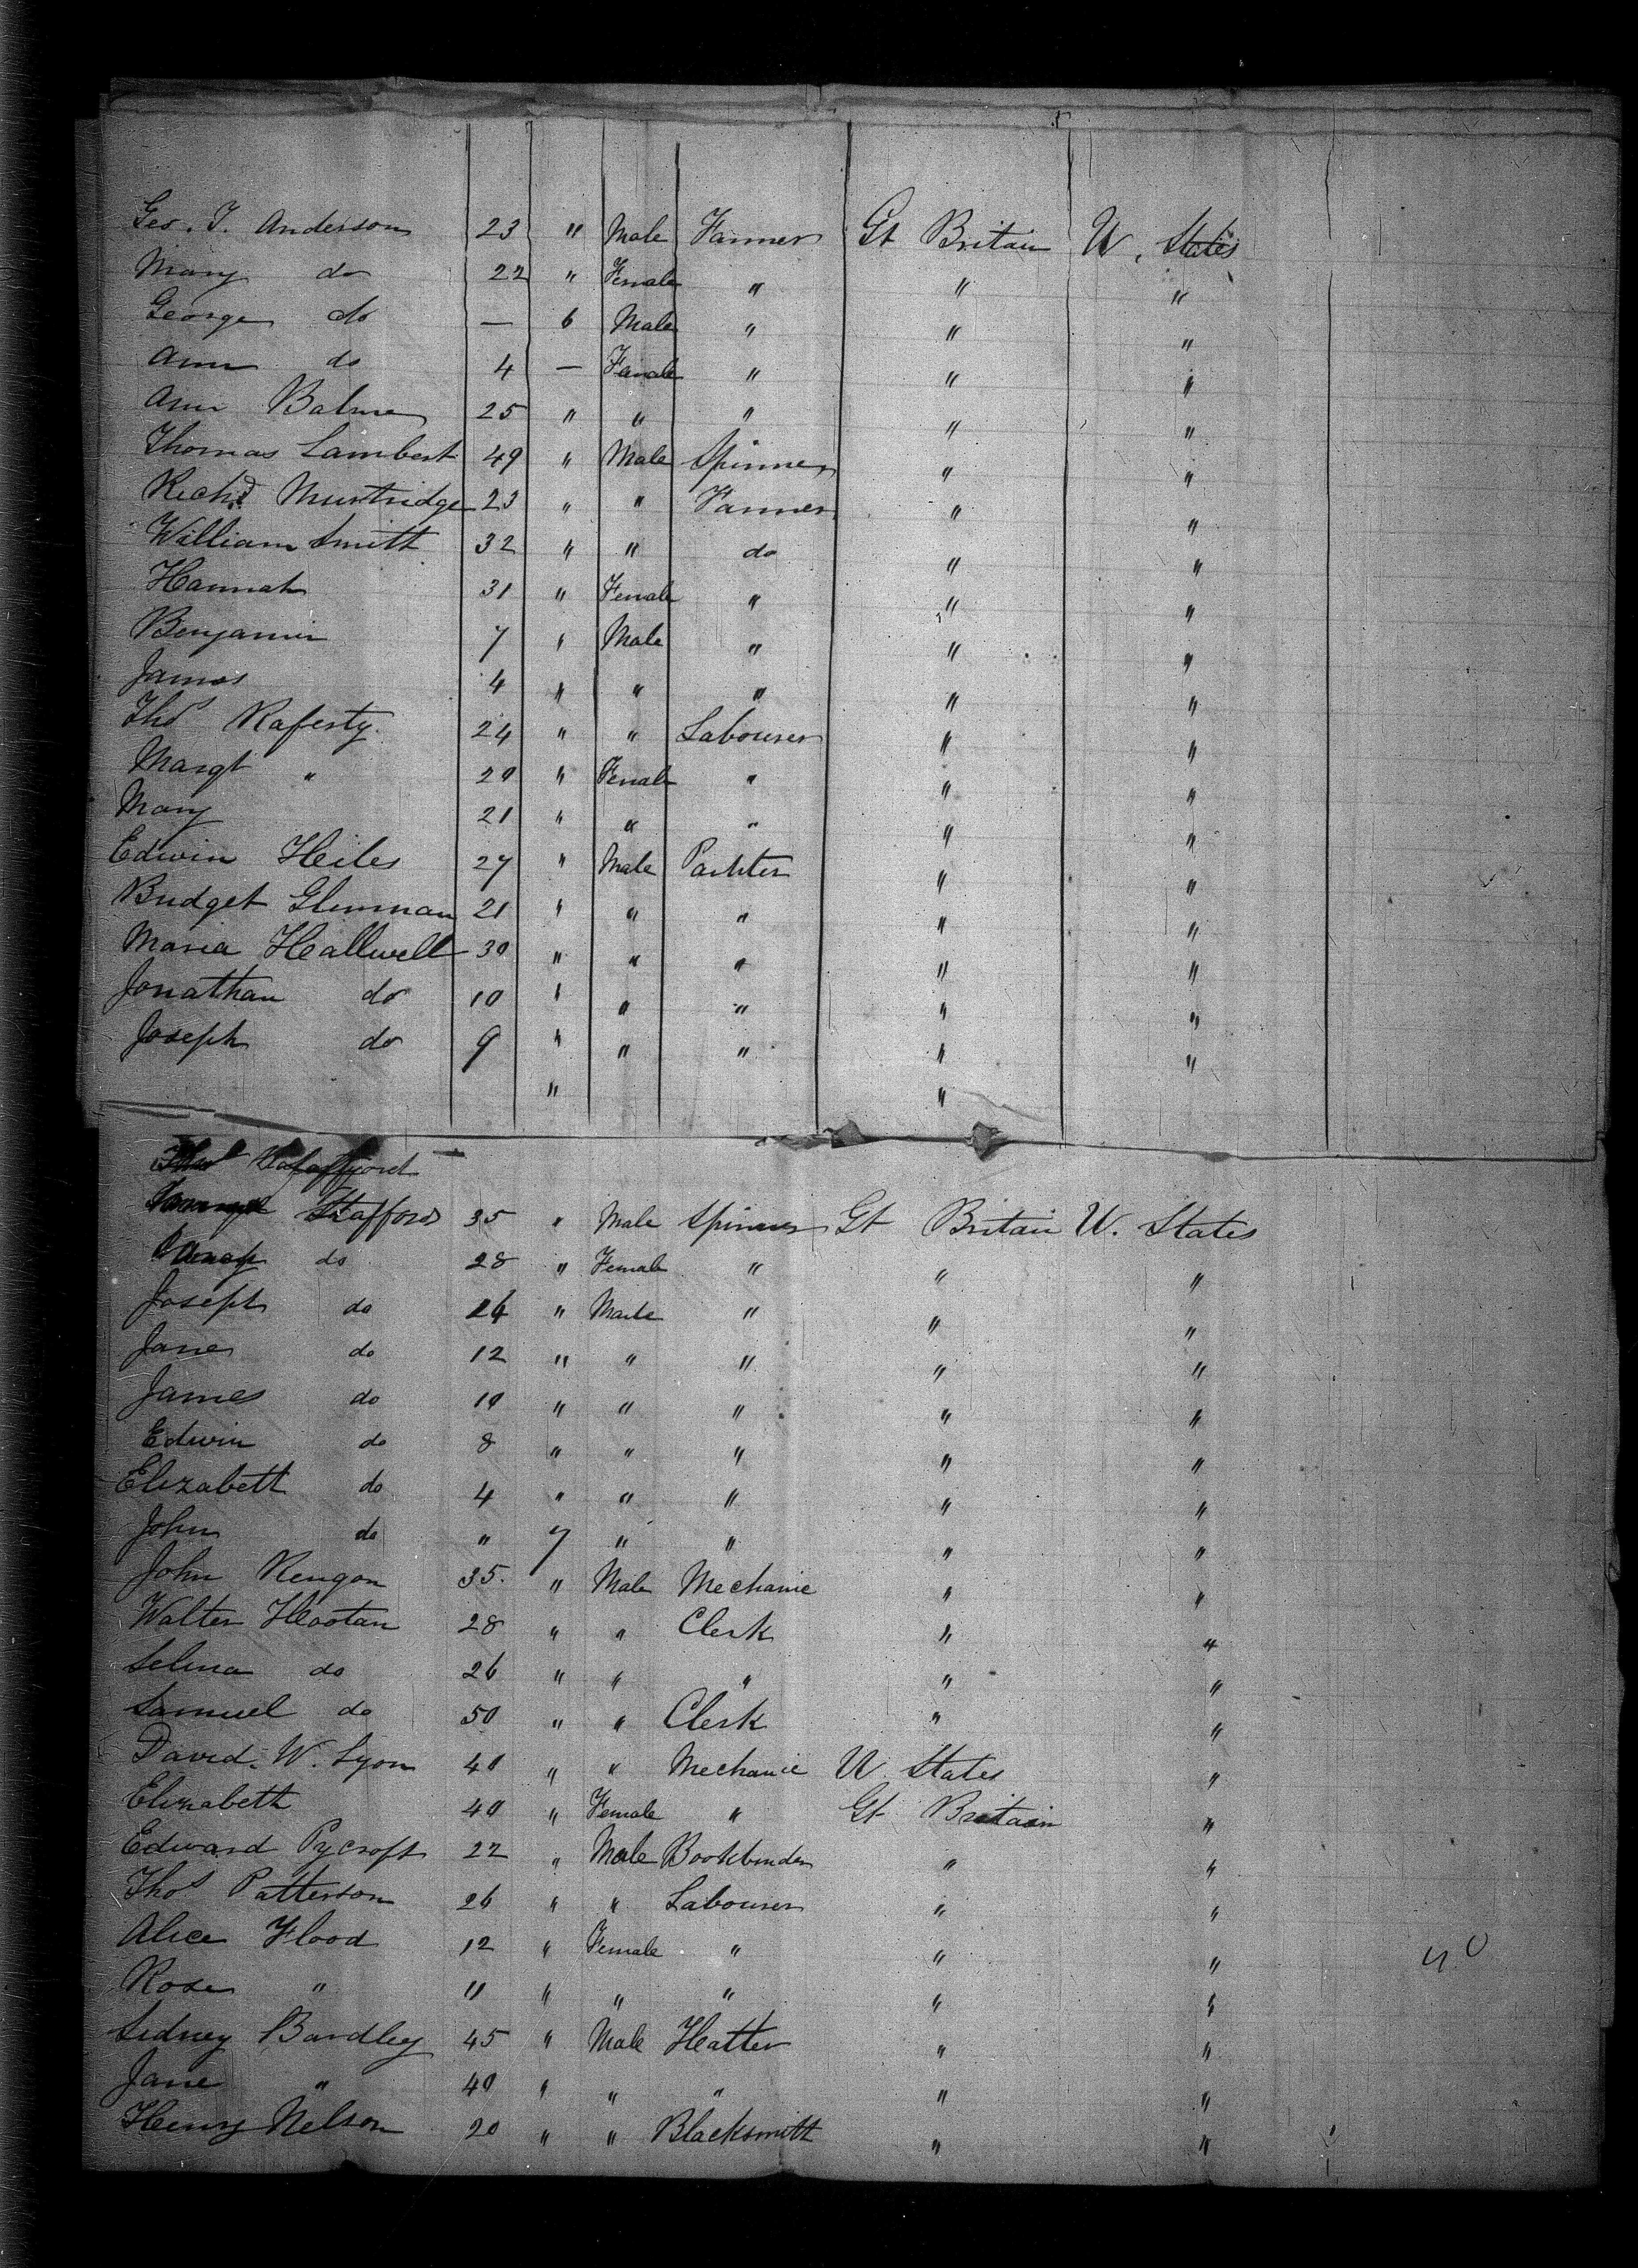 Geo. T. Anderson 23 " Male Farmer Gt Britain U. States
Mary do 22 " Female " " "
George do — 6 Male " " "
Ann do 4 — Female " " "
Ann Balme 25 " " " " "
Thomas Lambert 49 " Male Spinner " "
Richd Murtridge 23 " " Farmer " "
William Smith 32 " " do " "
Hannah 31 " Female " " "
Benjamin 7 " Male " " "
James 4 " " " " "
Thos Raferty 24 " " Labourer " "
Margt " 20 " Female " " "
Mary 21 " " " " "
Edwin Heiles 27 " Male " "
Bridget Glennan 21 " " " " "
Maria Hallwell 30 " " " " "
Jonathan do 10 " " " " "
Joseph do 9 " " " " "
" "
Stafford 35 " Male Spinner Gt Britain U. States
do 28 " Female " " "
Joseph do 14 " Male " " "
Jane do 12 " " " " "
James do 10 " " " " "
Edwin do 8 " " " " "
Elizabeth do 4 " " " " "
John do " 7 " " " "
John Rengon 35 " Male Mechanic " "
Walter Hootan 28 " " Clerk " "
Selina do 26 " " " " "
Samuel do 50 " " Clerk " "
David. W. Lyon 40 " " Mechanic U. States "
Elizabeth 40 " Female " Gt Britain "
Edward Pycroft 22 " Male Bookbinder " "
Thos Patterson 26 " " Labourer " "
Alice Flood 12 " Female " " "
Rose " 11 " " " " "
Sidney Bardley 45 " Male Hatter " "
Jane " 40 " " " " "
Henry Nelson 20 " " Blacksmith " "